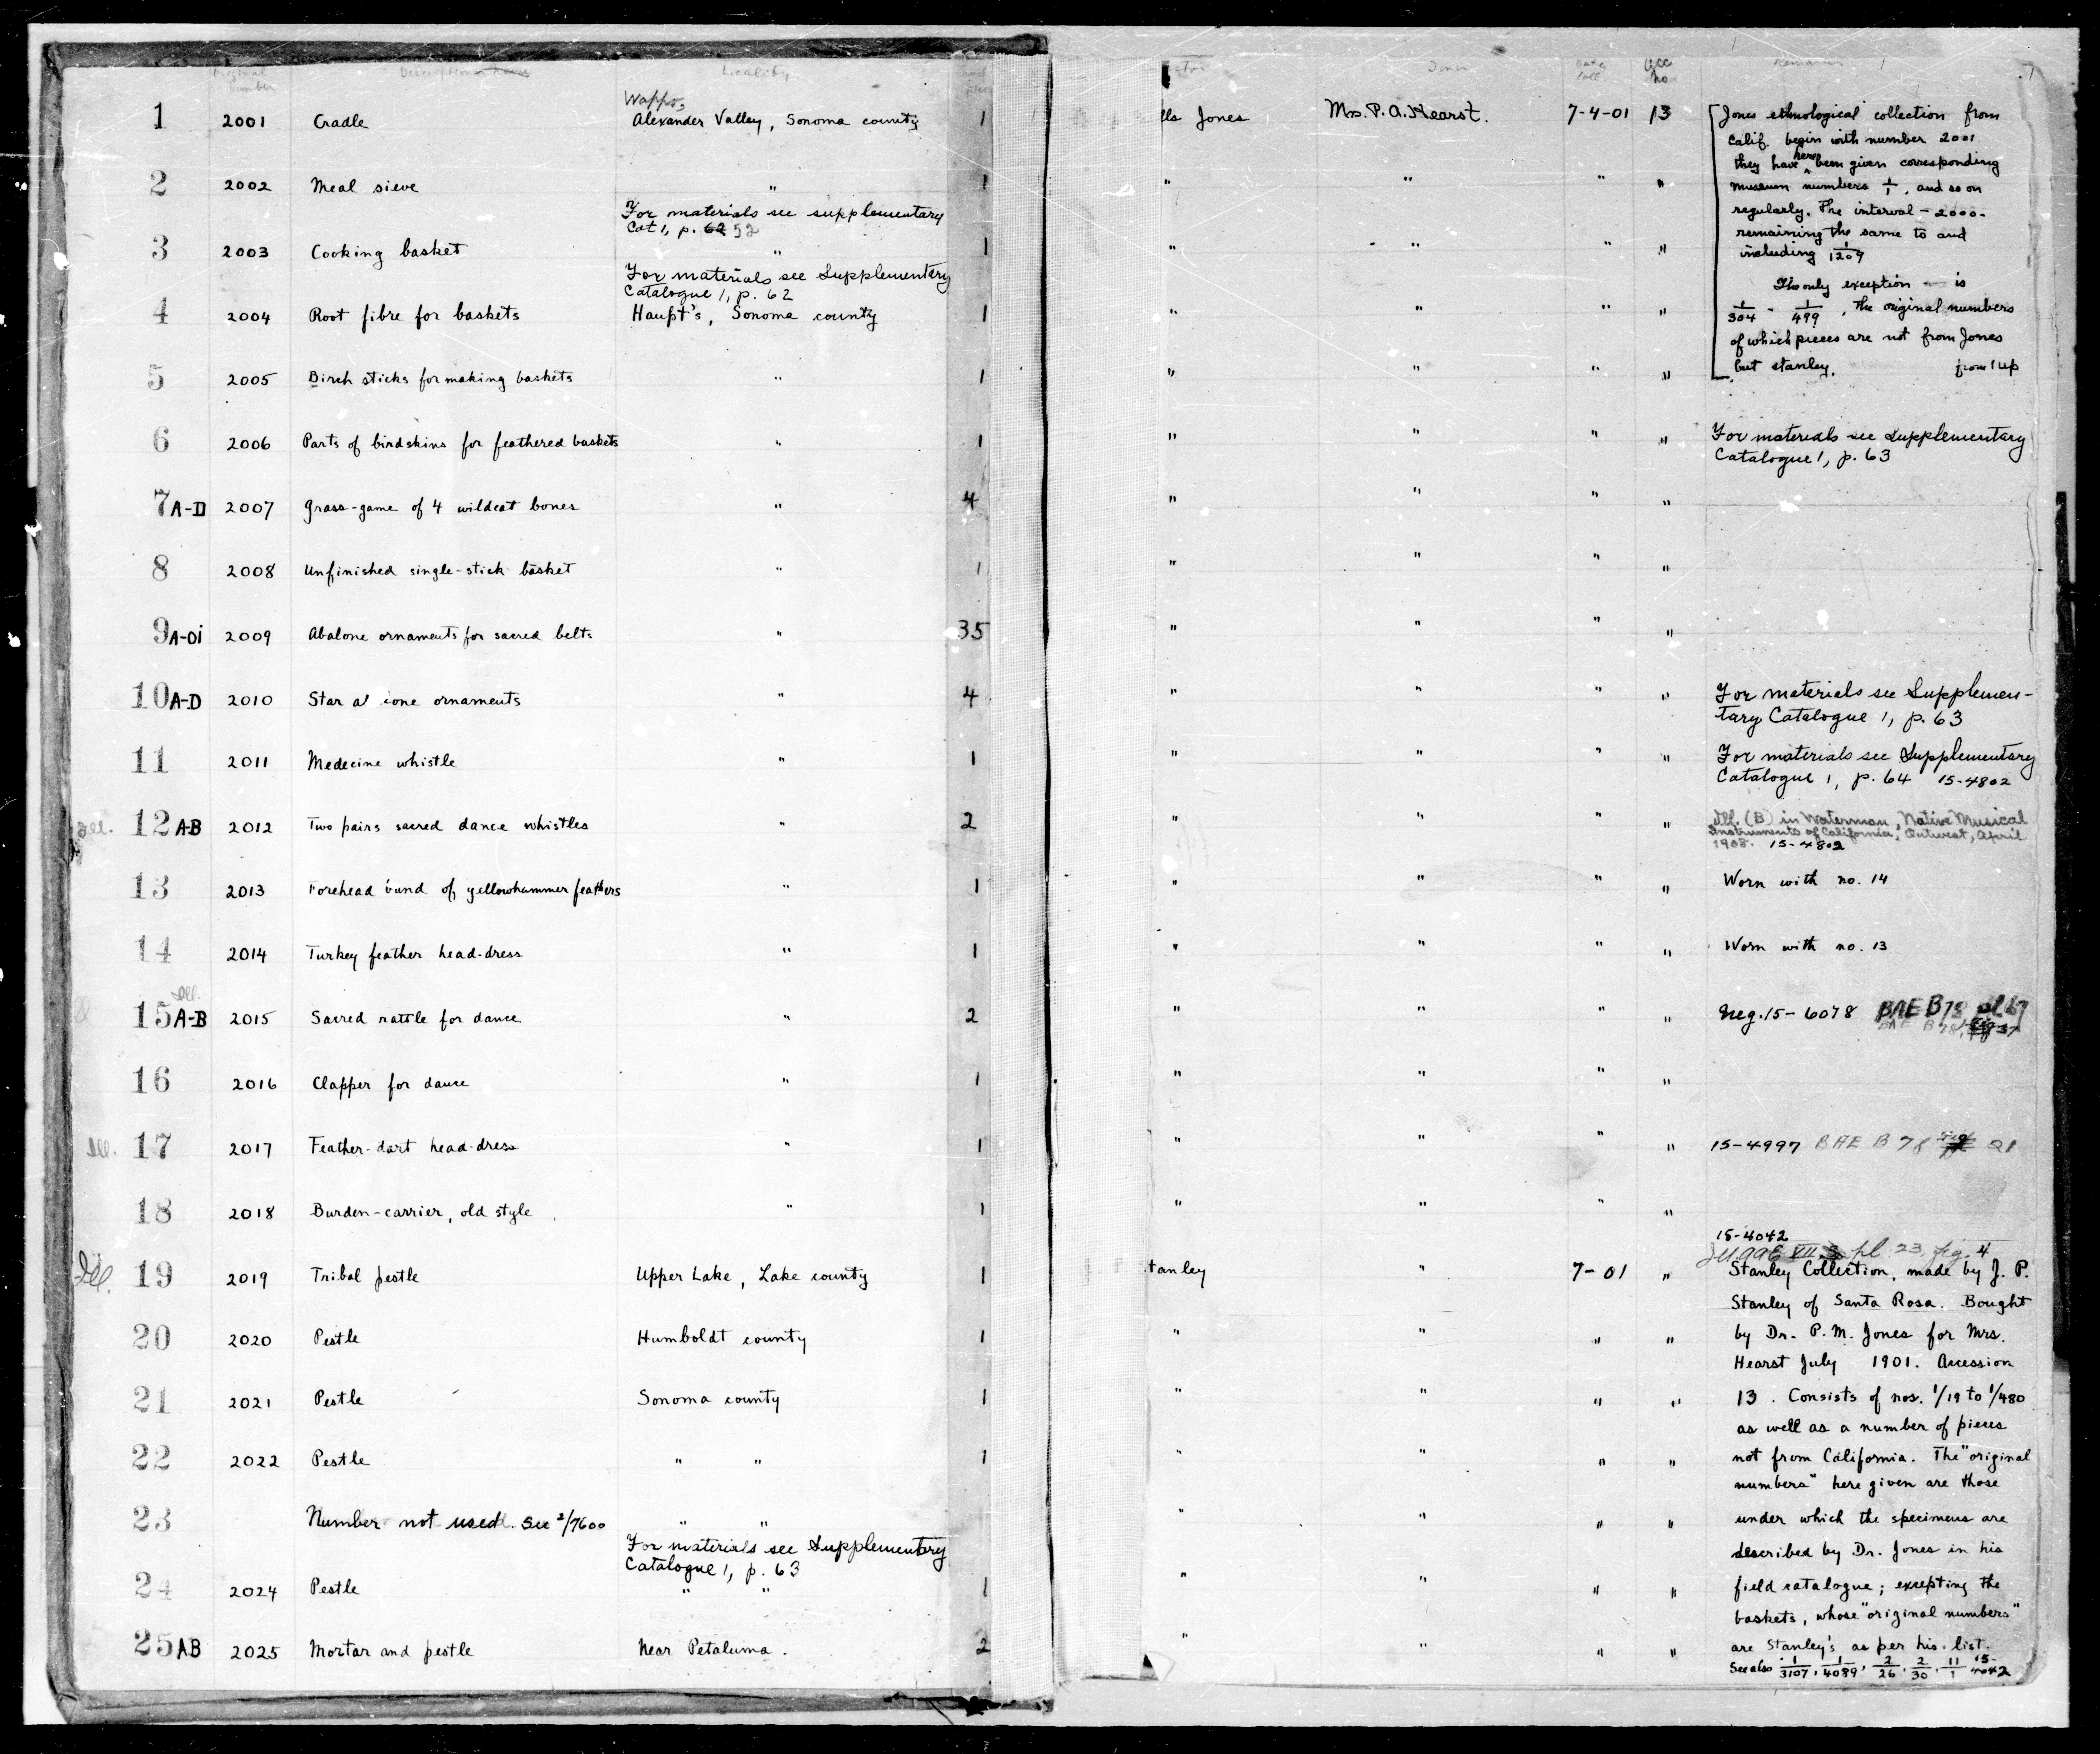 Original Number Description Locality
Wappo,
1 2001 Cradle Alexander Valley, Sonoma county 1
2 2002 Meal sieve " 1
For materials see supplementary
Cat 1, p. 52
3 2003 Cooking basket " 1
For materials see Supplementary
Catalogue 1, p. 62
4 2004 Root fibre for baskets Haupt's, Sonoma county 1
5 2005 Birch sticks for making baskets " 1
6 2006 Parts of birdskins for feathered baskets " 1
7 A-D 2007 Grass-game of 4 wildcat bones " 4
8 2008 Unfinished single-stick basket " 1
9 A-Oi 2009 Abalone ornaments for sacred belts " 35
10 A-D 2010 Star ornaments " 4
11 2011 Medecine whistle " 1
Ill. 12 AB 2012 Two pairs sacred dance whistles " 2
13 2013 Forehead band of yellowhammer feathers " 1
14 2014 Turkey feather head-dress " 1
Ill.
15 A-B 2015 Sacred rattle for dance " 2
16 2016 Clapper for dance " 1
Ill. 17 2017 Feather-dart head-dress " 1
18 2018 Burden-carrier, old style " 1
Ill. 19 2019 Tribal pestle Upper Lake, Lake county 1
20 2020 Pestle Humboldt county 1
21 2021 Pestle Sonoma county 1
22 2022 Pestle " " 1
23 Number not used. See 2/7600 " "
For materials see Supplementary
Catalogue 1, p. 63
24 2024 Pestle " " 1
25 AB 2025 Mortar and pestle Near Petaluma. 2
Donor Date Coll Acc no Remarks
lls Jones Mrs. P. A. Hearst. 7-4-01 13 [Jones ethnological collection from
Calif. begin with number 2001
they have here been given corresponding
" " " " museum numbers 1/1, and so on
regularly. The interval - 2000 -
remaining the same to and
" " " " including 1/1209
The only exception is
" " " " 1/304 - 1/499, the original numbers
of which pieces are not from Jones
" " " " but Stanley. from 1 up
" " " " For materials see Supplementary
Catalogue 1, p. 63
" " " "
" " " "
" " " "
" " " " For materials see Supplemen-
tary Catalogue 1, p. 63
" " " " For materials see Supplementary
Catalogue 1, p. 64 15-4802
" " " " Ill. (B) in Waterman, Native Musical
Instruments of California, Outwest, April
1908. 15-4802
" " " " Worn with no. 14
" " " " Worn with no. 13
" " " " Neg. 15-6078 BAE B78 pl 67
BAE B 78, fig 37
" " " "
" " " " 15-4997 BAE B 78 fig 21
" " " "
15-4042
pl 23, fig. 4
tanley " 7-01 " Stanley Collection, made by J. P.
Stanley of Santa Rosa. Bought
" " " " by Dr. P. M. Jones for Mrs.
Hearst July 1901. Accession
" " " " 13. Consists of nos. 1/19 to 1/480
as well as a number of pieces
" " " " not from California. The "original
numbers" here given are those
" " " " under which the specimens are
described by Dr. Jones in his
" " " " field catalogue; excepting the
baskets, whose "original numbers"
" " " " are Stanley's as per his list.
See also 1/3107, 1/4089, 2/26, 2/30, 11/1 15-4042